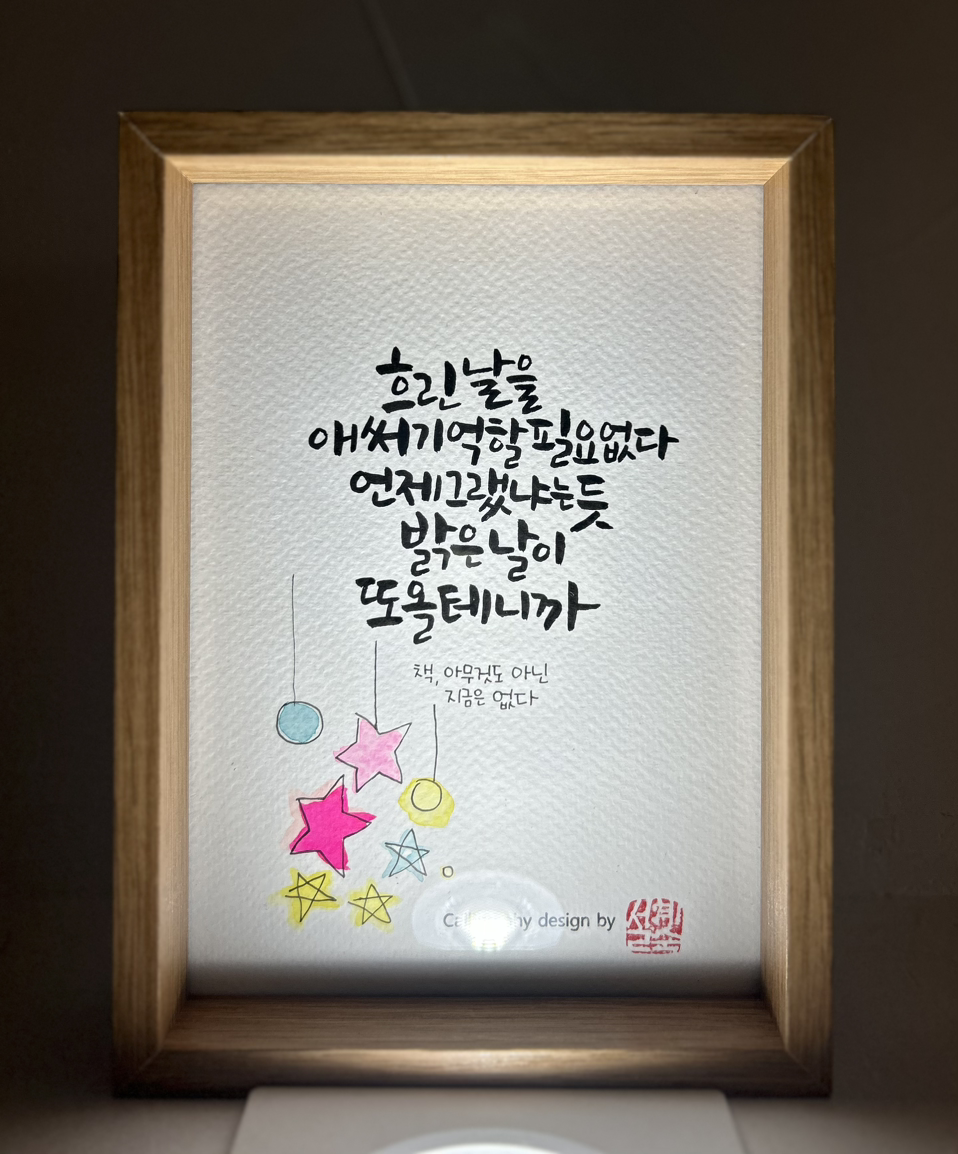 흐린 날을
애써 기억할 필요 없다
언제 그랬냐는 듯
밝은 날이
또 올 테니까
책, 아무것도 아닌
지금은 없다
design by